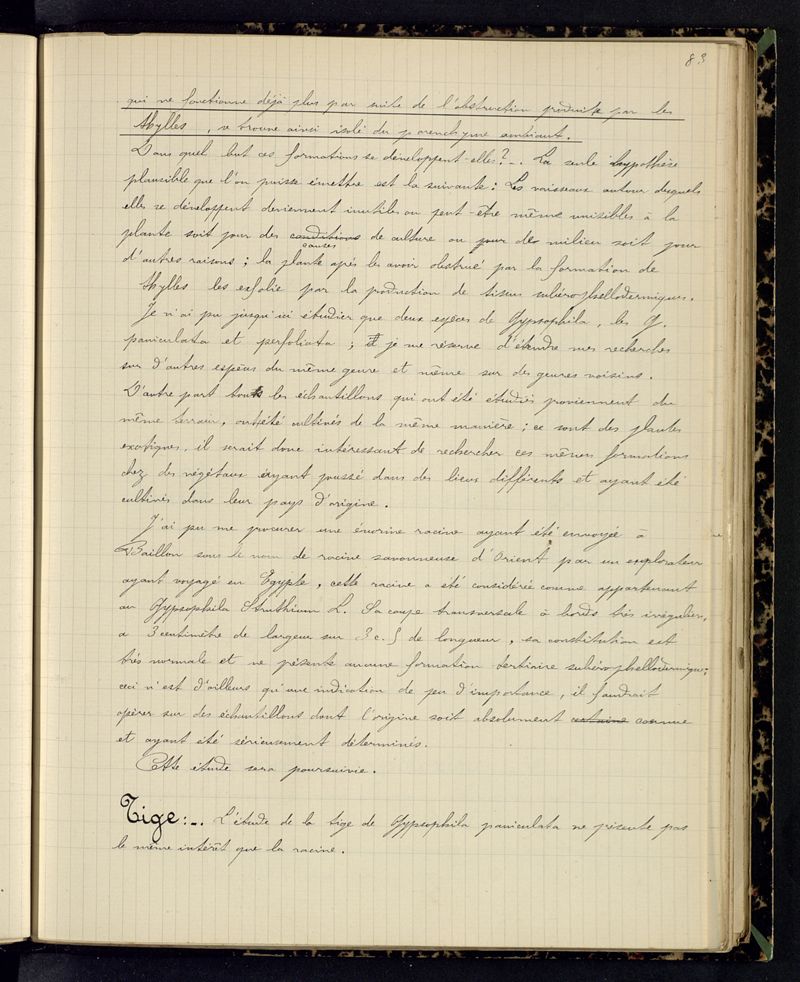 83
qui ne fonctionne déjà plus par suite de l'obstruction produite par les
thylles, se trouve ainsi isolé du parenchyme ambiant.
Dans quel but ces formations se développent-elles?_. La seule hypothèse
plausible que l'on puisse émettre est la suivante: Les vaisseaux autour desquels
elles se développent deviennent inutiles ou peut-être même nuisibles à la
plante soit pour des conditions de culture ou pour de milieu soit pour
causes
d'autres raisons; la plante après les avoir obstrué par la formation de
thylles les exfolie par la production de tissus subéro phellodermiques.
Je n'ai pu jusqu'ici étudier que deux espèces de Gypsophila, les G.
paniculata et perfoliata; je me réserve d'étendre mes recherches
sur d'autres espèces du même genre et même sur des genres voisins.
D'autre part tous les échantillons qui ont été étudiés proviennent du
même terrain, ont été cultivés de la même manière; ce sont des plantes
exotiques, il serait donc intéressant de rechercher ces mêmes formations
chez des végétaux ayant poussé dans des lieux différents et ayant été
cultivés dans leur pays d'origine.
J'ai pu me procurer une énorme racine ayant été envoyée à
Baillon sous le nom de racine savonneuse d'Orient par un explorateur
ayant voyagé en Egypte, cette racine a été considérée comme appartenant
au Gypsophila Struthium L. Sa coupe transversale à bords très irréguliers,
a 3 centimètre de largeur sur 3 c. 5 de longueur, sa constitution est
très normale et ne présente aucune formation tertiaire subéro phellodermique;
ceci n'est d'ailleurs qu'une indication de peu d'importance, il faudrait
opérer sur des échantillons dont l'origine soit absolument certaine connue
et ayant été sérieusement déterminés.
Cette étude sera poursuivie.
Tige:_. L'étude de la tige de Gypsophila paniculata ne présente pas
le même intérêt que la racine.